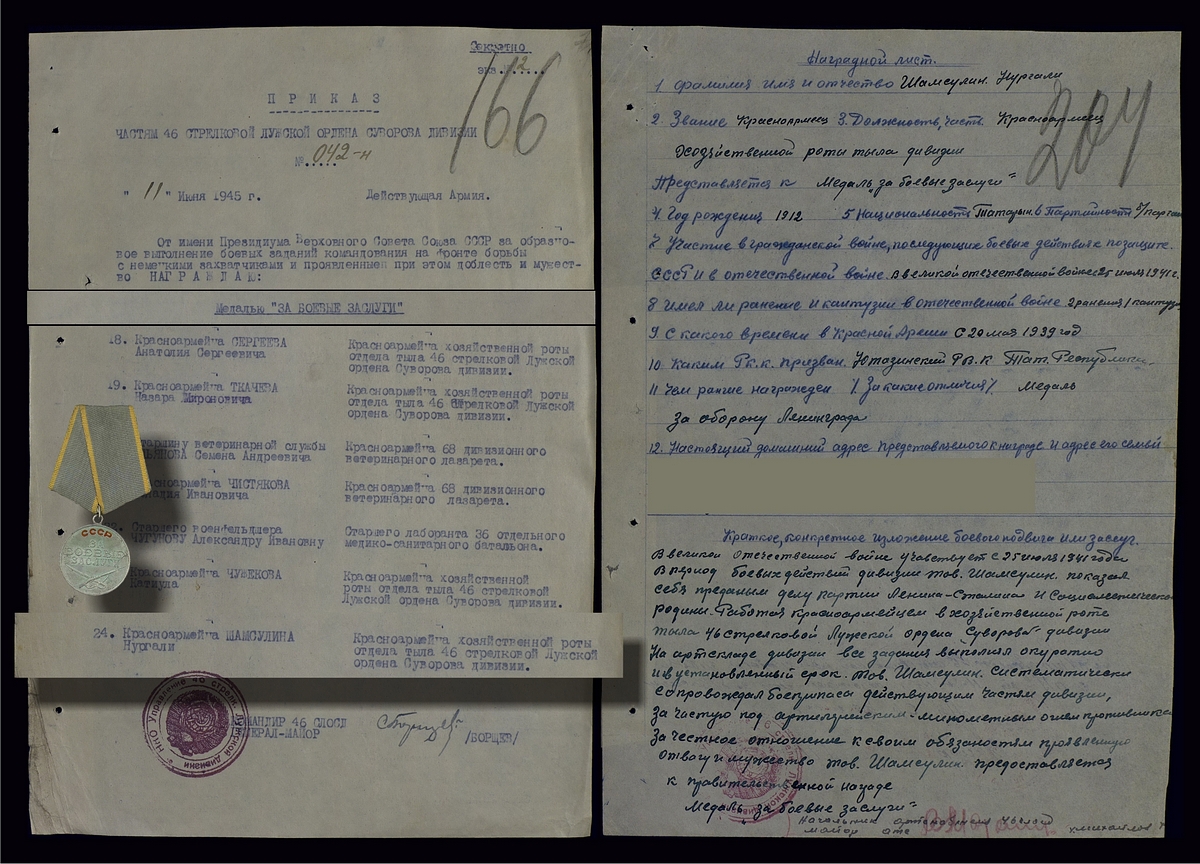 Секретно
экз. № 2
166
П Р И К А З
ЧАСТЯМ 46 СТРЕЛКОВОЙ ЛУЖСКОЙ ОРДЕНА СУВОРОВА ДИВИЗИИ
№ 042-н
" 11 " Июня 1945 г. Действующая Армия.
От имени Президиума Верховного Совета Союза СССР за образцо-
вое выполнение боевых заданий командования на фронте борьбы
с немецкими захватчиками и проявленные при этом доблесть и мужест-
во НАГРАЖДАЮ:
Медалью "ЗА БОЕВЫЕ ЗАСЛУГИ"
18. Красноармейца СЕРГЕЕВА Красноармейца хозяйственной роты
Анатолия Сергеевича отдела тыла 46 стрелковой Лужской
ордена Суворова дивизии.
19. Красноармейца ТКАЧЕВА Красноармейца хозяйственной роты
Назара Мироновича отдела тыла 46 стрелковой Лужской
ордена Суворова дивизии.
таршину ветеринарной службы Красноармейца 68 дивизионного
ЬЯНОВА Семена Андреевича ветеринарного лазарета.
сноармейца ЧИСТЯКОВА Красноармейца 68 дивизионного
надия Ивановича ветеринарного лазарета.
Старшего военфельдшера Старшего лаборанта 36 отдельного
ЧУГУНОВУ Александру Ивановну медико-санитарного батальона.
Красноармейца ЧУМЕКОВА Красноармейца хозяйственной
роты отдела тыла 46 стрелковой
Лужской ордена Суворова дивизии.
СССР
ЗА БОЕВЫЕ ЗАСЛУГИ
24. Красноармейца ШАМСУЛИНА Красноармейца хозяйственной роты
Нургали отдела тыла 46 стрелковой Лужской
ордена Суворова дивизии.
КОМАНДИР 46 СЛОСД
ГЕНЕРАЛ-МАЙОР /БОРЩЕВ/
НКО Управление 46 стрелк. Лужской дивизии
Наградной лист.
204
1. Фамилия имя и отчество Шамсулин. Нургали
2. Звание Красноармеец 3. Должность, часть. Красноармеец
Хозяйственной роты тыла дивизии
Представляется к Медаль "за боевые заслуги"
4 Год рождения 1912 5 Национальность Татарин. 6 Партийность б/парт
7 Участие в гражданской войне, последующие боевых действиях по защите.
СССР и в отечественной войне. в великой отечественной войне с 25 июля 1941 г.
8 Имел ли ранение и кантузии в отечественной войне 2 ранения 1 кантуз
9. С какого времени в Красной Армии с 20 мая 1939 год
10. Каким Рк.к. призван. Ютазинский Р В. К Тат. Республики.
11 Чем ранше награжден / За какие отличия/. Медаль
за оборону Ленинграда
12. Настоящий домашний адрес представляемого к награде и адрес его семьи
Краткое, конкретное изложение боевого подвига или заслуг.
В великой Отечественной войне учавствует с 25 июля 1941 года
В период боевых действий дивизии тов. Шамсулин. показал
себя преданым делу партии Ленина-Сталина и Социалистической
родины. Работая красноармейцем в хозяйственной роте
тыла 46 стрелковой Лужской ордена Суворова дивизии
На артскладе дивизии все задания выполнял окуратно
и в установленный срок. Тов. Шамсулин. систематически
сопровождал боеприпаса действующим частям дивизии,
За частую под артилерийским-минометным огнем противника
За честное отношение к своим обязаностям проявленую
отвагу и мужество тов. Шамсулин. предоставляется
к правительственной нагаде
Медаль "за боевые заслуги"
Начальник
майор